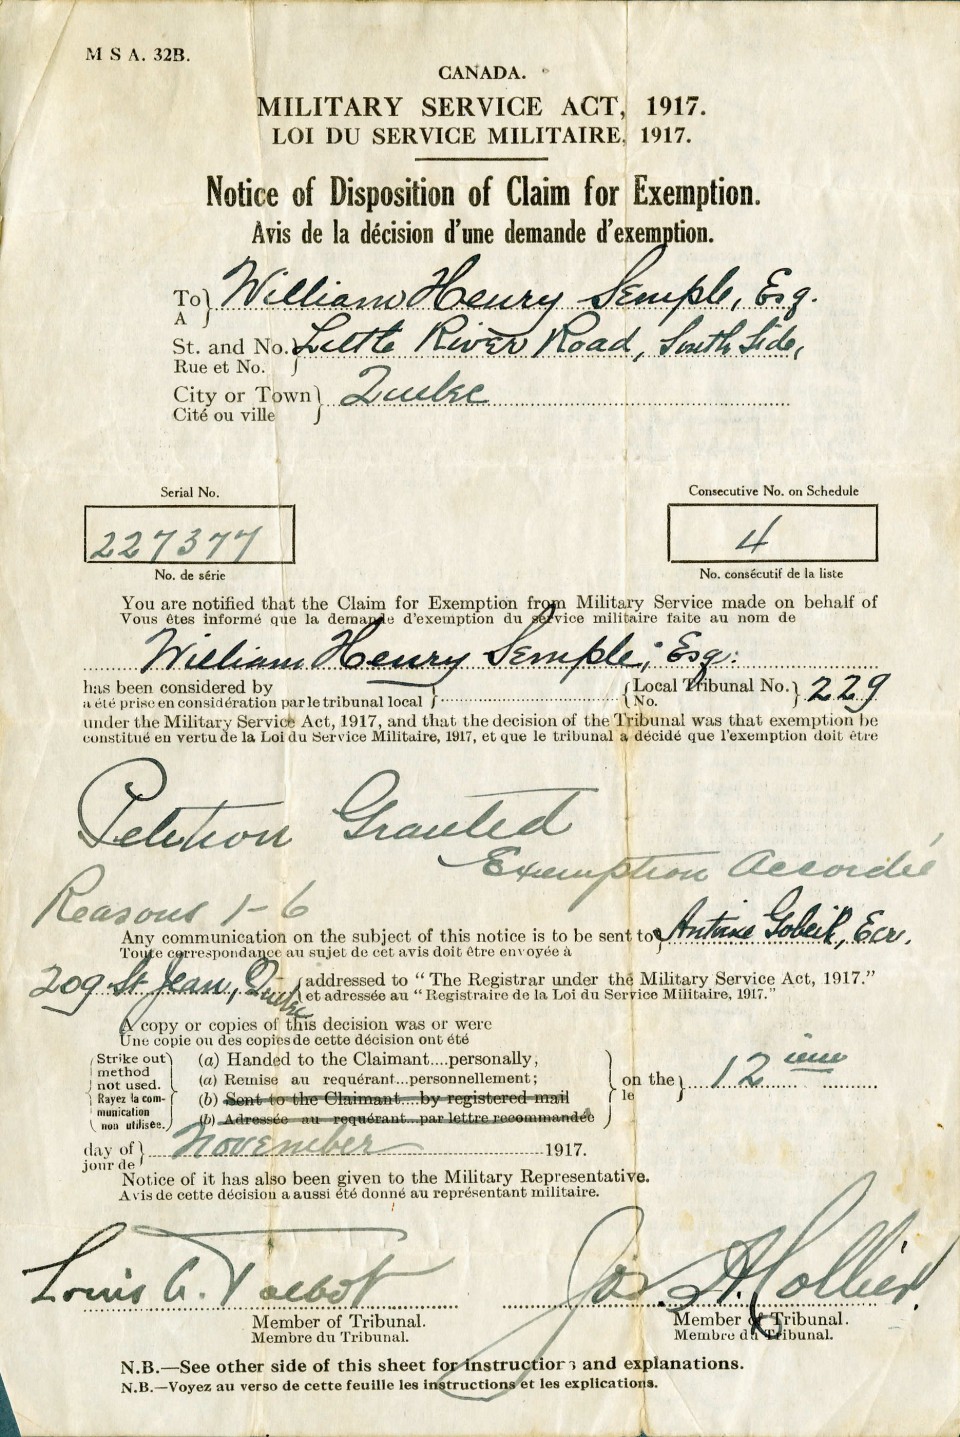 M S A. 32B.
CANADA.
MILITARY SERVICE ACT, 1917.
LOI DU SERVICE MILITAIRE, 1917.
Notice of Disposition of Claim for Exemption.
Avis de la décision d'une demande d'exemption.
To } William Henry Semple, Esq.
A
St. and No. } Little River Road, South Side,
Rue et No.
City or Town } Quebec
Cité ou ville
Serial No.
Consecutive No. on Schedule
227377
4
No. de série
No. consécutif de la liste
You are notified that the Claim for Exemption from Military Service made on behalf of
Vous êtes informé que la demande d'exemption du service militaire faite au nom de
William Henry Semple, Esq.
has been considered by } { Local Tribunal No. } 229
a été prise en considération par le tribunal local { No.
under the Military Service Act, 1917, and that the decision of the Tribunal was that exemption be
constitué en vertu de la Loi du Service Militaire, 1917, et que le tribunal a décidé que l'exemption doit être
Petition Granted
Exemption Accordée
Reasons 1-6
Any communication on the subject of this notice is to be sent to } Antoine Gobeil, Ecr.
Toute correspondance au sujet de cet avis doit être envoyée à
209 St Jean, Quebec { addressed to "The Registrar under the Military Service Act, 1917."
et adressée au "Registraire de la Loi du Service Militaire, 1917."
A copy or copies of this decision was or were
Une copie ou des copies de cette décision ont été
Strike out method not used.
Rayez la communication non utilisée.
(a) Handed to the Claimant....personally,
(a) Remise au requérant...personnellement;
(b) Sent to the Claimant....by registered mail
(b) Adressée au requérant...par lettre recommandée
on the } 12 ième
le
day of } November 1917.
jour de
Notice of it has also been given to the Military Representative.
Avis de cette décision a aussi été donné au représentant militaire.
Louis A. Talbot
Jos. A. Collier
Member of Tribunal.
Membre du Tribunal.
Member of Tribunal.
Membre du Tribunal.
N.B.—See other side of this sheet for instructions and explanations.
N.B.—Voyez au verso de cette feuille les instructions et les explications.